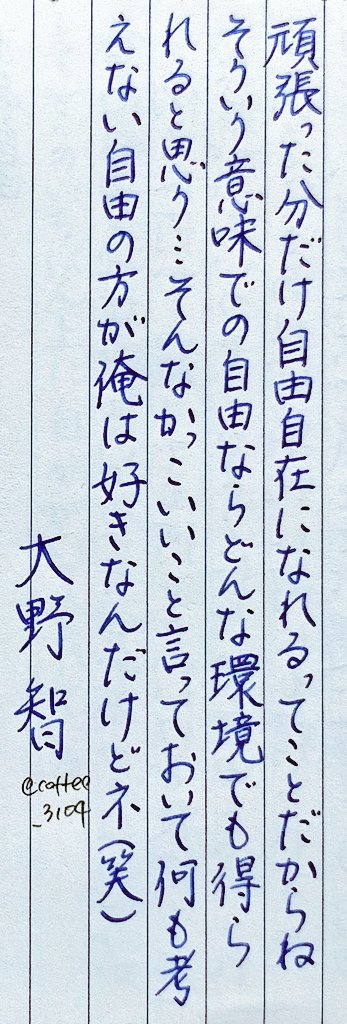 頑張った分だけ自由自在になれるってことだからね
そういう意味での自由ならどんな環境でも得ら
れると思う…そんなかっこいいこと言っておいて何も考
えない自由の方が俺は好きなんだけどネ(笑)
大野智
@coffee
_3104